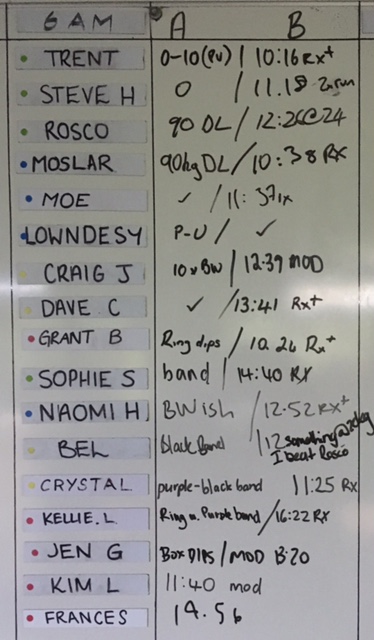 6 AM A B
TRENT 0-10 (PU) / 10:16 Rx+
STEVE H 0 / 11.18 2xrun
ROSCO 90 DL / 12:26@24
MOSLAR 90kg DL / 10:38 RX
MOE ✓ / 11:37
LOWNDESY P-U / ✓
CRAIG J 10xBW / 12.39 MOD
DAVE C ✓ / 13:41 Rx+
GRANT B Ring dips / 10.26 Rx+
SOPHIE S band / 14:40 RX
NAOMI H BWish / 12.52 RX+
BEL black Band / 12 something @20kg
I beat Rosco
CRYSTAL purple-black band 11:25 RX
KELLIE.L Ring w. Purple band / 16:22 RX
JEN G Box DIPS / MOD 13:20
KIM L 11:40 mod
FRANCES 14.56